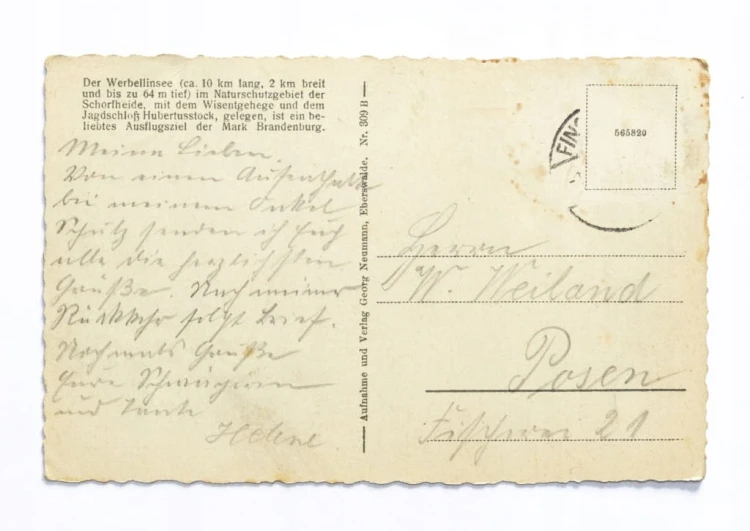 Der Werbellinsee (ca. 10 km lang, 2 km breit
und bis zu 64 m tief) im Naturschutzgebiet der
Schorfheide, mit dem Wisentgehege und dem
Jagdschloß Hubertusstock, gelegen, ist ein be-
liebtes Ausflugsziel der Mark Brandenburg.
Meine Lieben,
Von einem Aufenthalte
bei meinem Onkel
Schulz senden ich Euch
alle die herzlichsten
Grüße. Nach meiner
Rückkehr folgt Brief.
Nochmals Grüße
Eure Schwägerin
und Tante
Helene
Aufnahme und Verlag Georg Neumann, Eberswalde. Nr. 309 B
FIN
565820
Herrn
W. Weiland
Posen
21